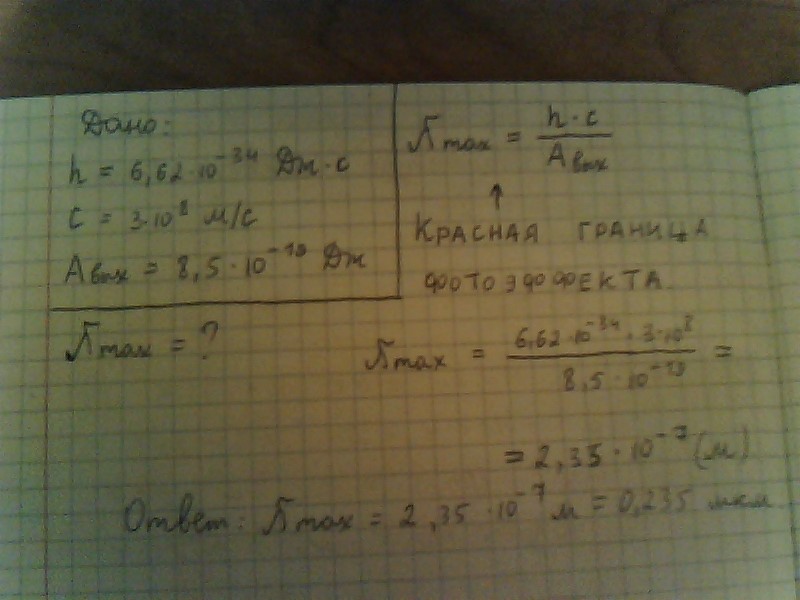 Дано:
h = 6,62·10⁻³⁴ Дж·с
c = 3·10⁸ м/с
Aвых = 8,5·10⁻¹⁹ Дж
λmax = ?
λmax = h·c / Aвых
↑
КРАСНАЯ ГРАНИЦА
ФОТОЭФФЕКТА.
λmax = 6,62·10⁻³⁴·3·10⁸ / 8,5·10⁻¹⁹ =
= 2,35·10⁻⁷ (м)
Ответ: λmax = 2,35·10⁻⁷ м = 0,235 мкм